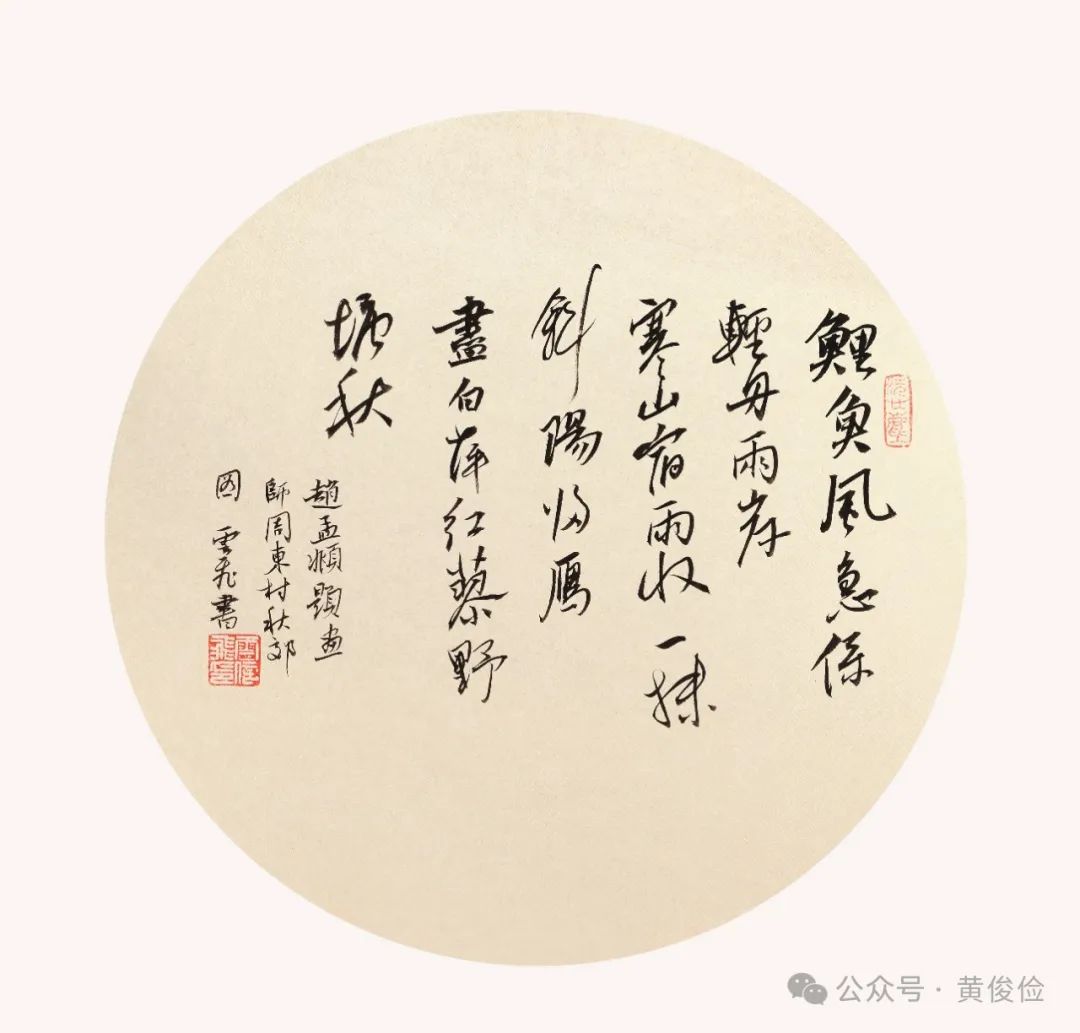 鯉魚風急係
輕舟兩岸
寒山宿雨收一抹
斜陽归鴈
盡白萍红蓼野
塘秋
趙孟頫題畫
師周東村秋郊
图 雲飛書
公众号·黄俊俭